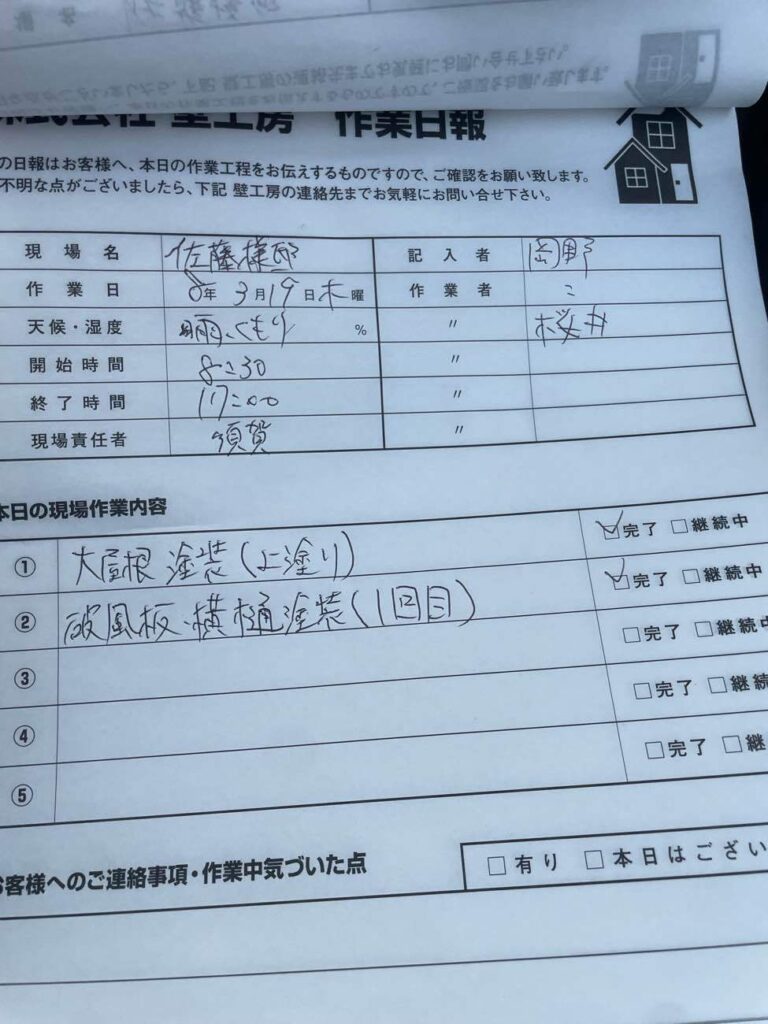 株式会社 壁工房 作業日報
の日報はお客様へ、本日の作業工程をお伝えするものですので、ご確認をお願い致します。
不明な点がございましたら、下記 壁工房の連絡先までお気軽にお問い合せ下さい。
現場名 佐藤様邸 記入者 岡野
作業日 8年 3月19日木曜 作業者 〃
天候・湿度 晴雨、くもり % 〃 桜井
開始時間 8:30 〃
終了時間 17:00 〃
現場責任者 須賀 〃
本日の現場作業内容
① 大屋根 塗装(上塗り) ☑完了 □継続中
② 破風板、横樋塗装(1回目) ☑完了 □継続中
③ □完了 □継続中
④ □完了 □継続
⑤ □完了 □継
お客様へのご連絡事項・作業中気づいた点 □有り □本日はござい